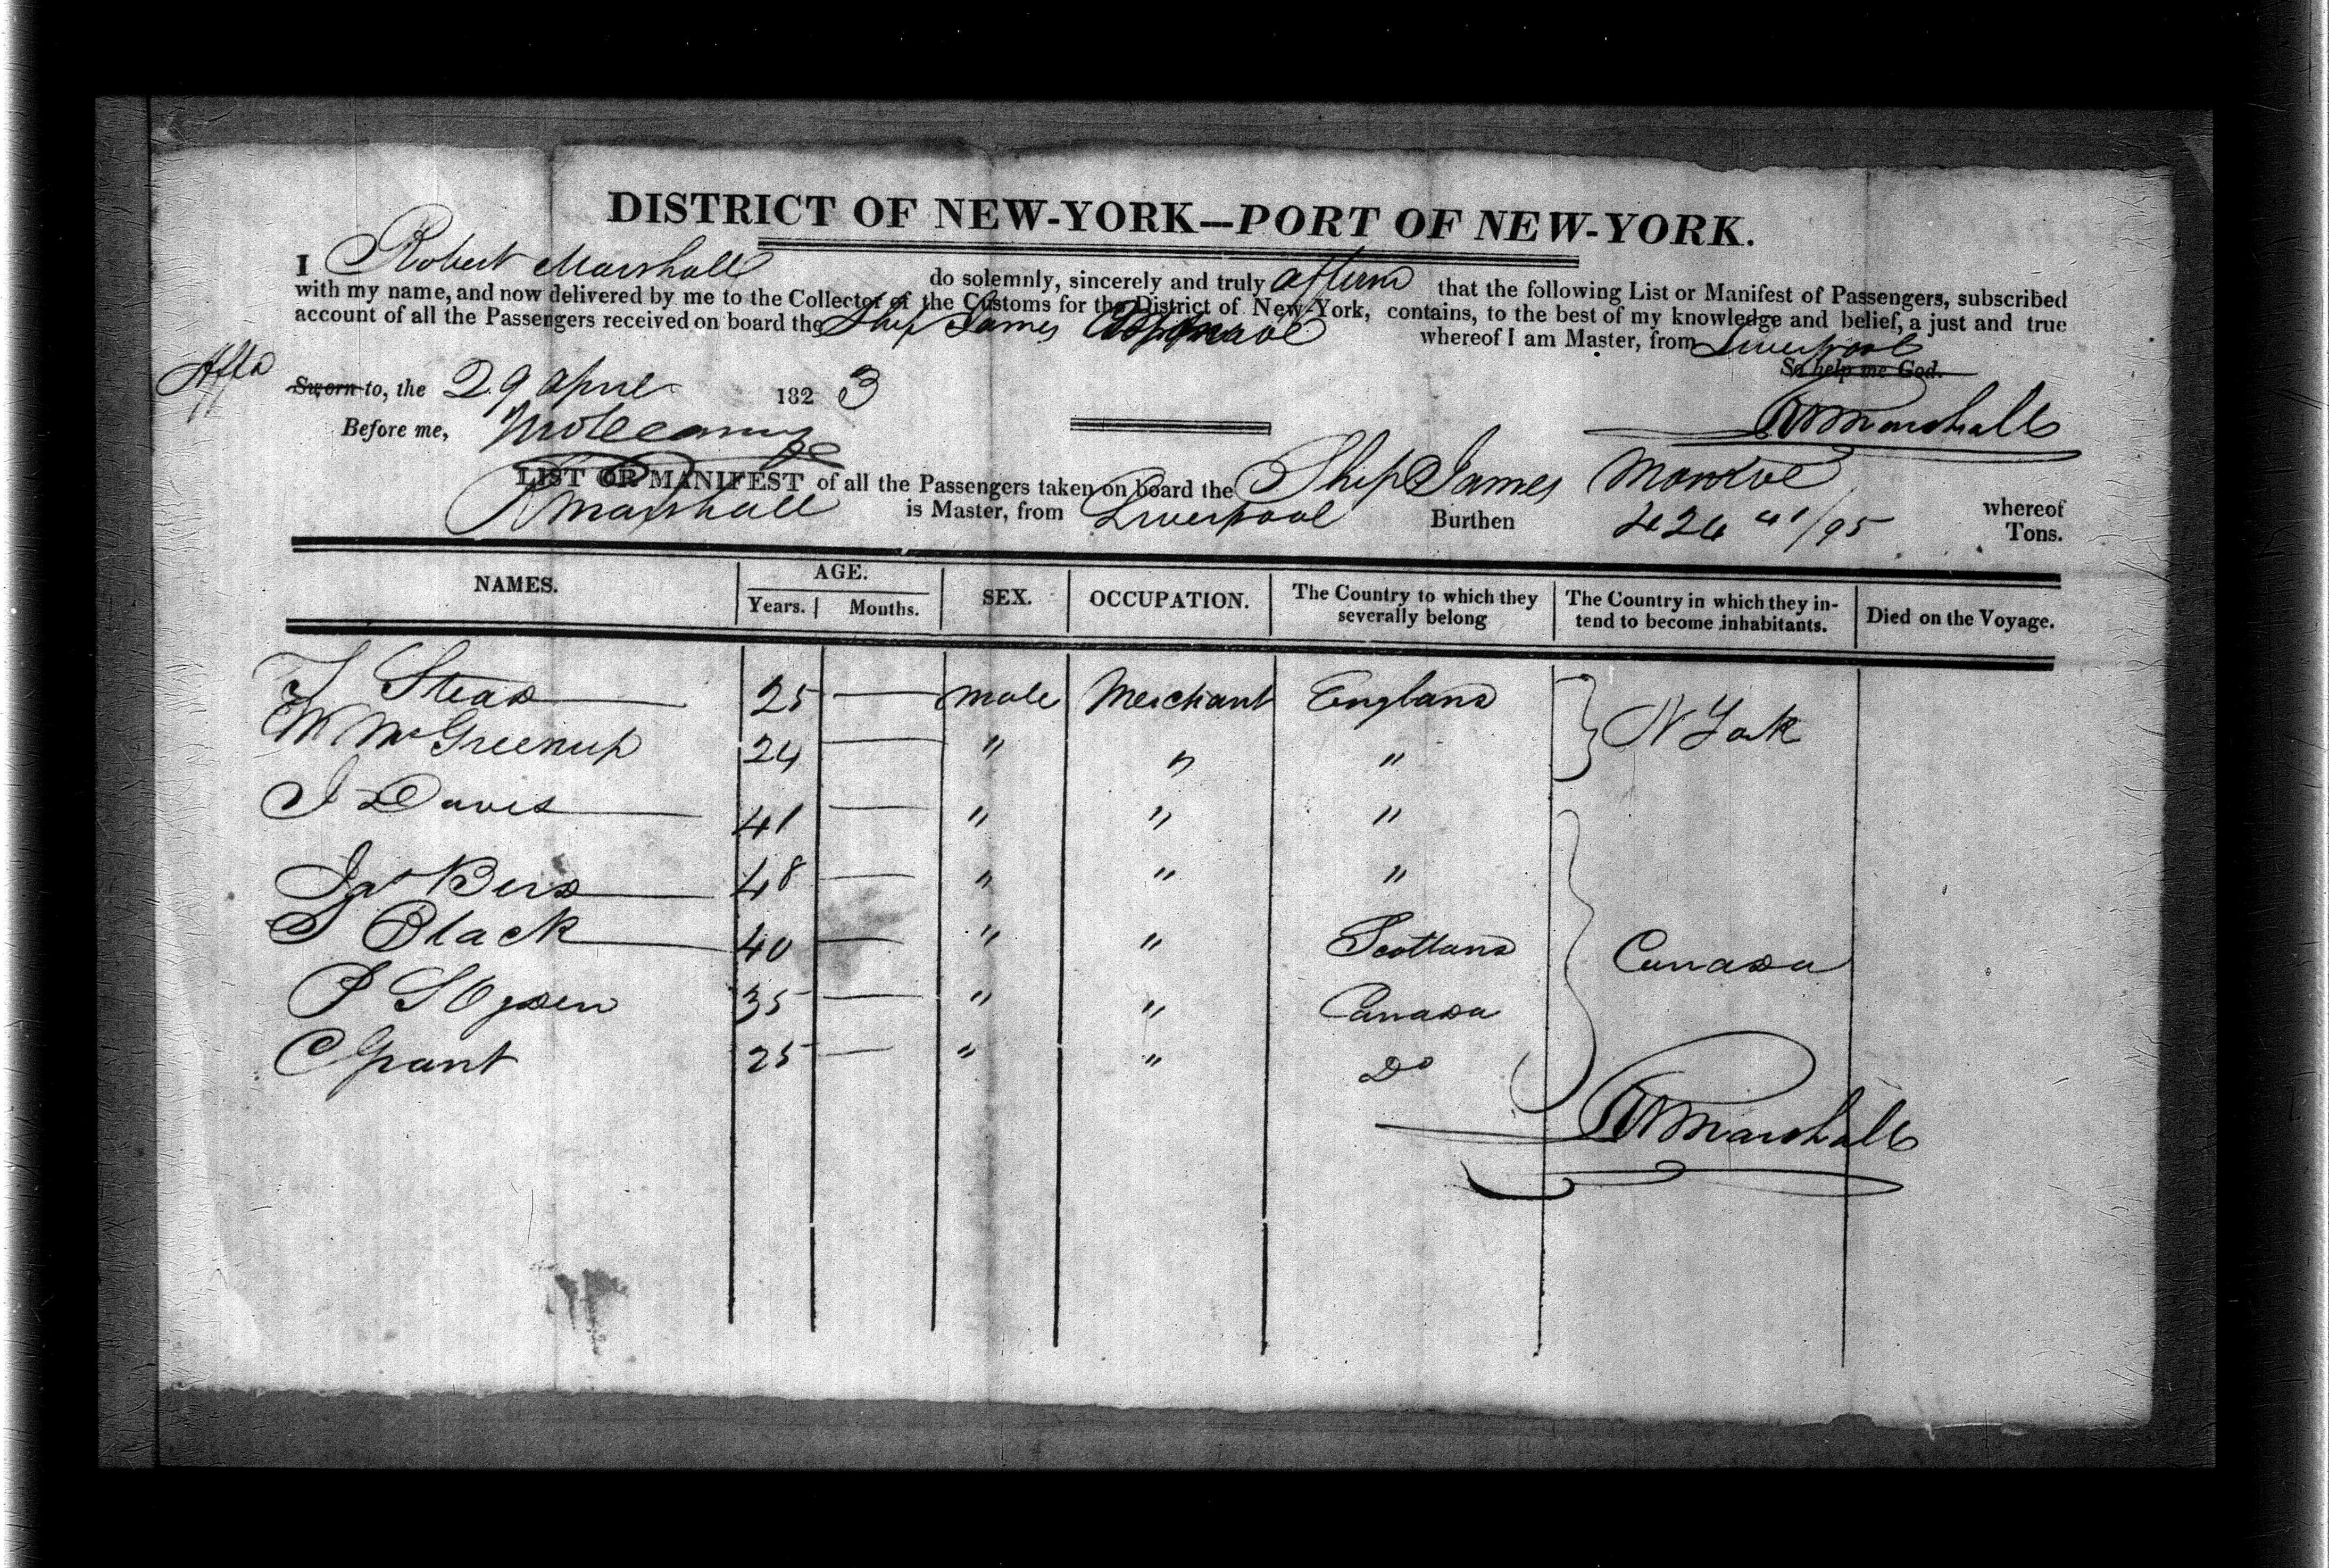 DISTRICT OF NEW-YORK—PORT OF NEW-YORK.
I Robert Marshall do solemnly, sincerely and truly affirm that the following List or Manifest of Passengers, subscribed
with my name, and now delivered by me to the Collector of the Customs for the District of New-York, contains, to the best of my knowledge and belief, a just and true
account of all the Passengers received on board the Ship James Monroe whereof I am Master, from Liverpool
So help me God.
Affd
Sworn to, the 29 April 1823
R Marshall
Before me,
LIST OR MANIFEST of all the Passengers taken on board the Ship James Monroe whereof
R Marshall is Master, from Liverpool Burthen 424 41/95 Tons.
NAMES. AGE. SEX. OCCUPATION. The Country to which they severally belong The Country in which they intend to become inhabitants. Died on the Voyage.
Years. Months.
T Stead 25 — male Merchant England } N York
W McGreenup 24 — " " "
J Davis 41 — " " "
Bird 48 — " " "
J Black 40 — " " Scotland } Canada
P S Ogden 35 — " " Canada
C Grant 25 — " " Do
R Marshall